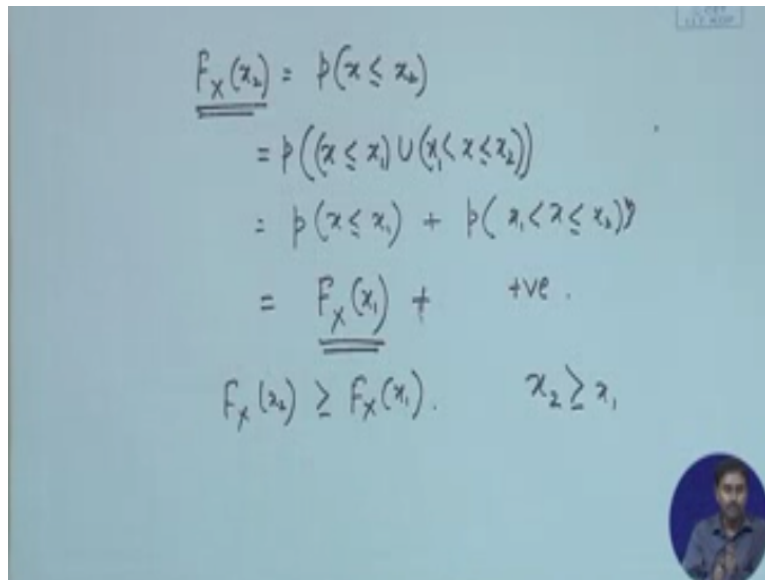 F_X(x₂) = p(x ≤ x₂)
= p((x ≤ x₁) ∪ (x₁ < x ≤ x₂))
= p(x ≤ x₁) + p(x₁ < x ≤ x₂))
= F_X(x₁) + +ve.
F_X(x₂) ≥ F_X(x₁). x₂ ≥ x₁